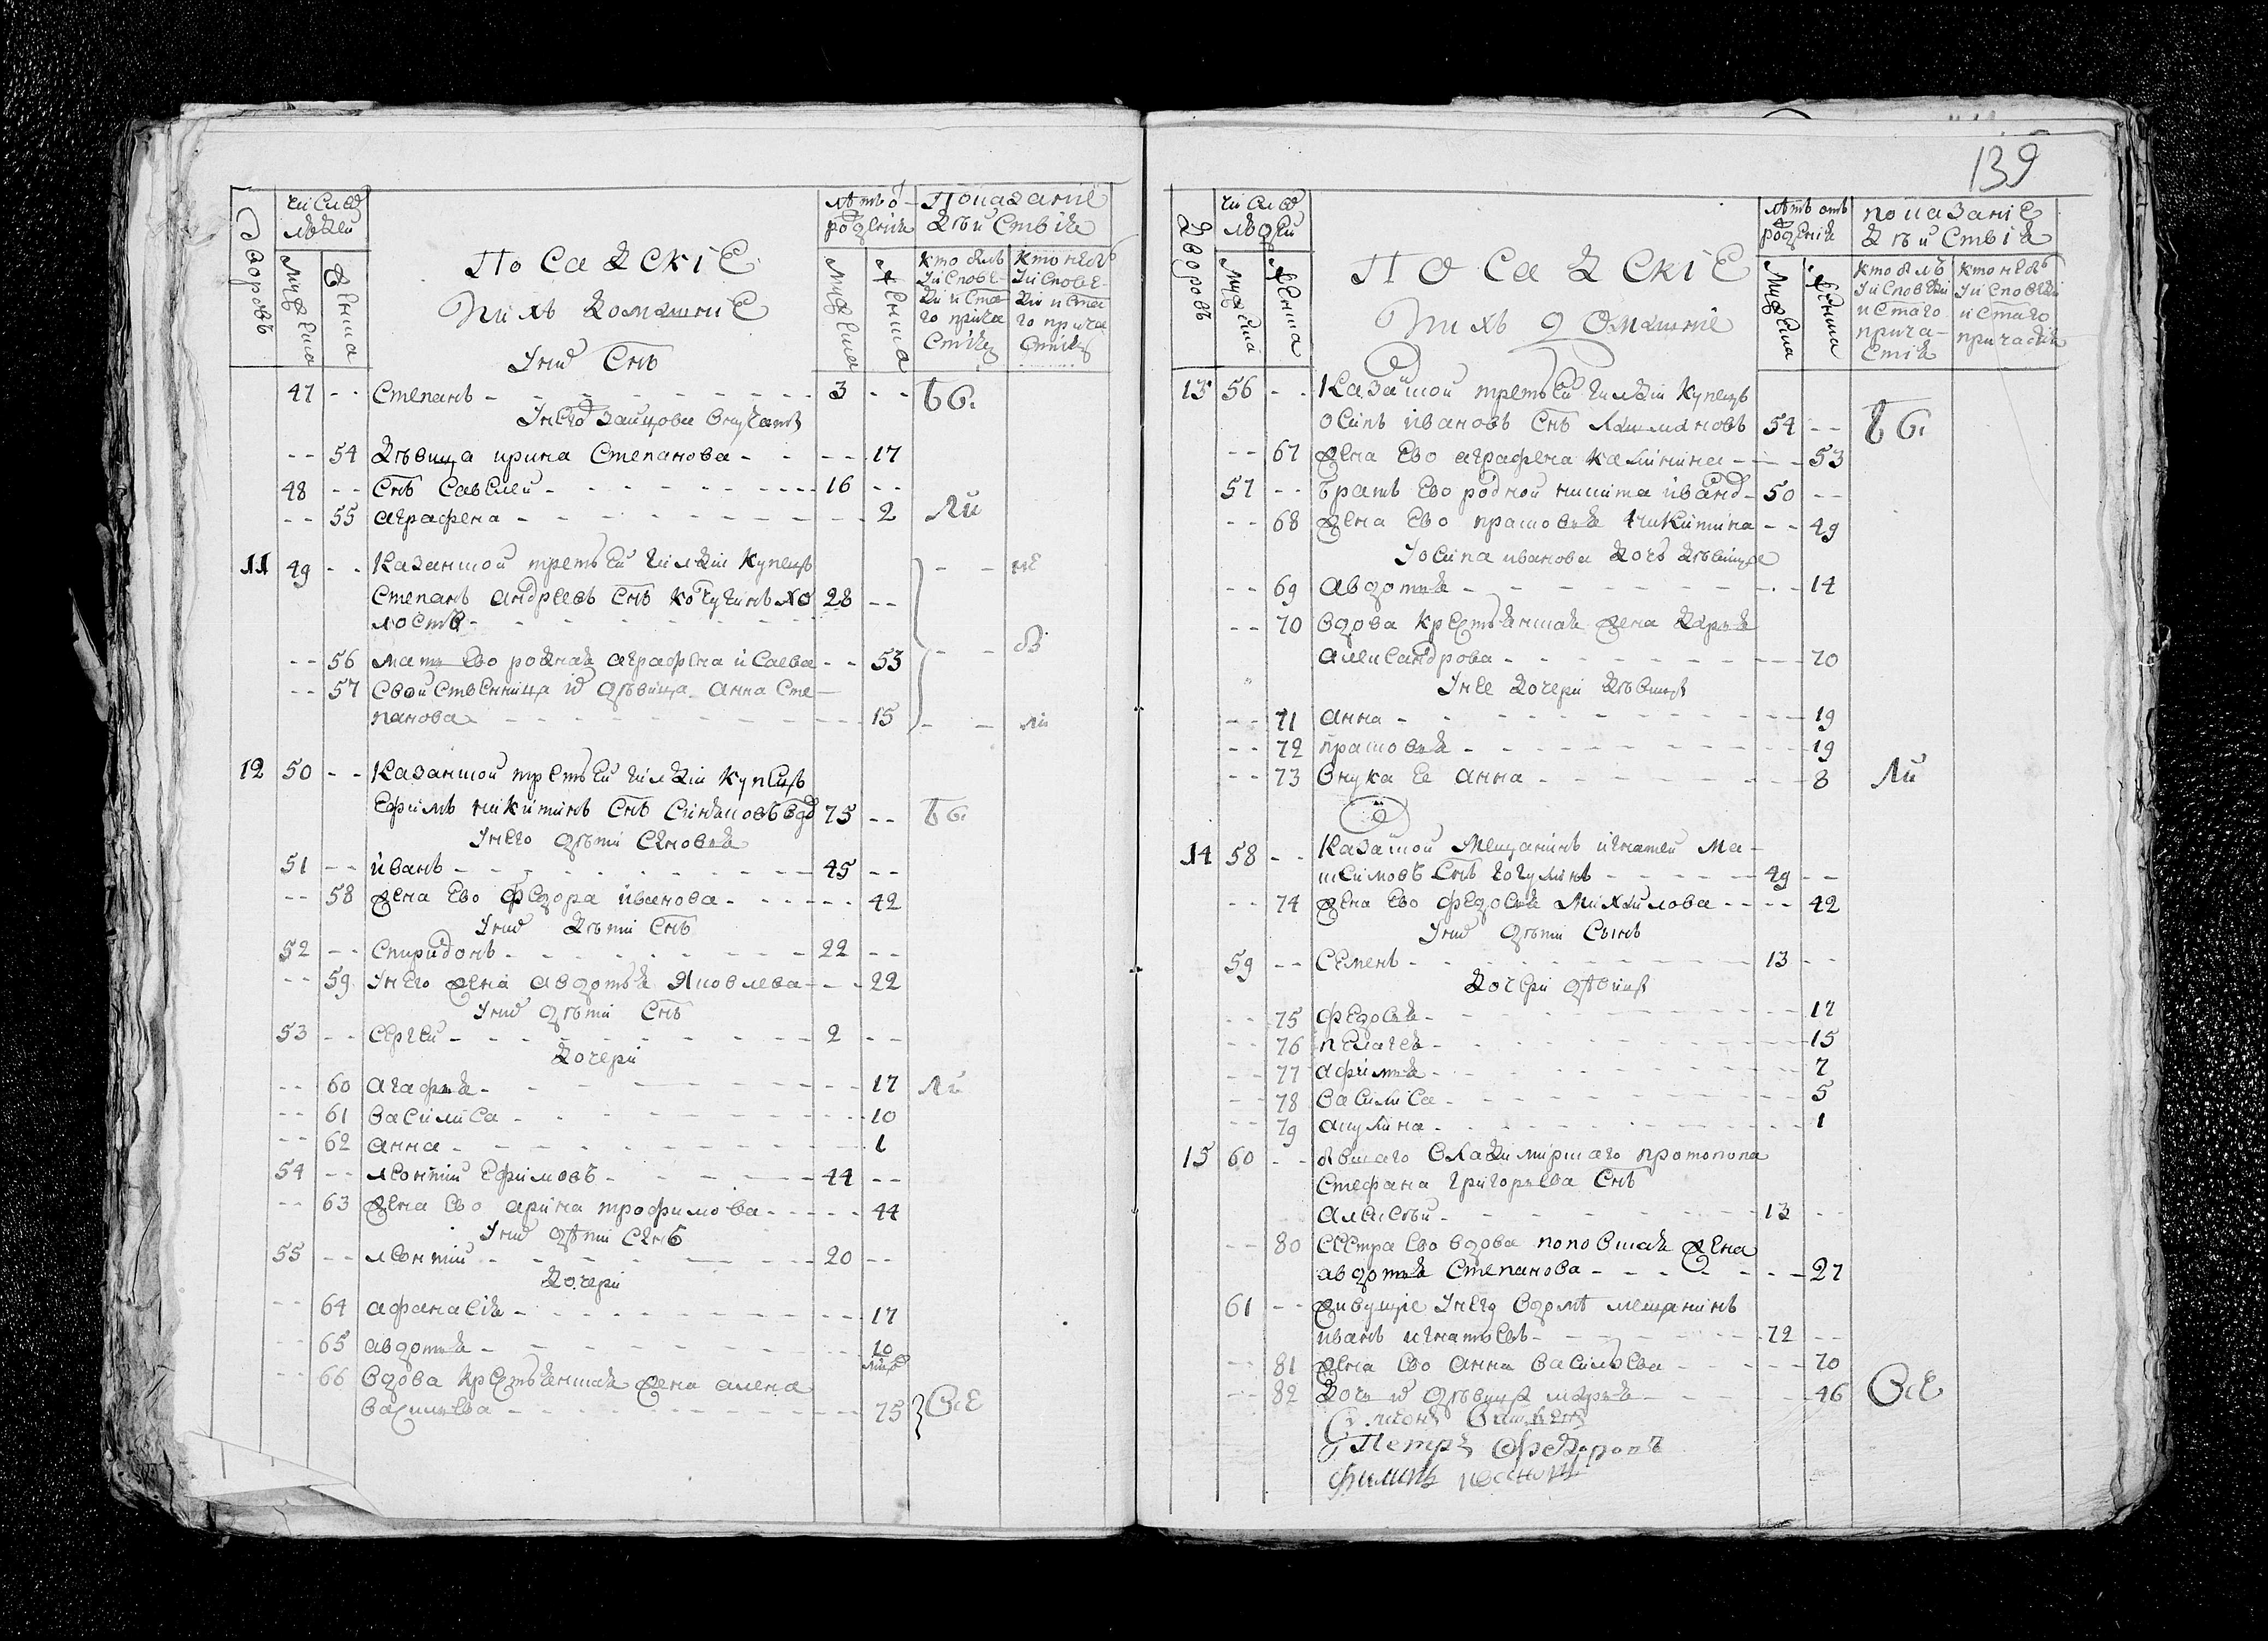 Дворовъ
число людей
мужеска
женска
Посадскiе
и ихъ домашнiе
лѣтъ о рожденiя
мужеска
женска
Показанiе действiя
кто былъ у исповеди и стаго причастiя
кто не былъ у исповеди и стаго причастiя
У нихъ снъ
47 - - Степанъ - 3 - - бы
У него Зайцова внучатъ
- - 54 девица ирина Степанова - - - 17
48 - - снъ Савелей - 16 - -
- - 55 аграфена - - - 2 ли
11 49 - - Казанской третьей гилдiи купецъ - - не
Степанъ андреевъ снъ Кочугинъ хо 28 - -
лостъ -
- - 56 мать ево родная аграфена исаева - - 53 - - бы
- - 57 свойственница iд девица анна Сте
панова - - - 15 - - ли
12 50 - - Казанской третьей гилдiи купецъ
Ефимъ никитинъ снъ Синяковъ вдо 75 - - бы
У него дети сыновья
51 - - иванъ - 45 - -
- - 58 жена ево федора иванова - - - 42
У нихъ дети снъ
52 - - Спиридонъ - 22 - -
- - 59 У него жена авдотья Яковлева - - 22
У нихъ дети снъ
53 - - Сергей - 2 - -
Дочери
- - 60 агафья - - - 17 ли
- - 61 василиса - - - 10
- - 62 анна - - - 1
54 - - леонтiй Ефимовъ - 44 - -
- - 63 жена ево арина трофимова - - - 44
У нихъ дѣти снъ
55 - - леонтiй - 20 - -
Дочери
- - 64 афанасiя - - - 17
- - 65 авдотья - - - 10
- - 66 вдова крестьянская жена алена
василева - - - 75 все
139
Дворовъ
число людей
мужеска
женска
Посадскiе
и ихъ домашнiе
лѣтъ отъ рожденiя
мужеска
женска
показанiе действiя
кто былъ у исповѣди и стаго причастiя
кто не былъ у исповѣди и стаго причастiя
13 56 - - Казанской третьей гилдiи купецъ
осипъ ивановъ снъ Лашмановъ 54 - - бы
- - 67 жена ево аграфена калинина - - - 53
57 - - братъ ево родной никита иванов - 50 - -
- - 68 жена ево прасковья никитина - - 49
У осипа иванова дочь девица
- - 69 авдотья - - - 14
- - 70 вдова крестьянская жена дарья
александрова - - - 70
У нее дочери девицы
- - 71 анна - - - 19
- - 72 прасковья - - - 19
- - 73 внука ее анна - - - 8 ли
14 58 - - Казанской мещанинъ игнатей ма-
ксимовъ снъ гогулинъ - 49 - -
- - 74 жена ево федосья михайлова - - - 42
У нихъ дети сынъ
59 - - Семенъ - 13 - -
Дочери дѣвицы
- - 75 федосья - - - 17
- - 76 пелагея - - - 15
- - 77 афимья - - - 7
- - 78 василиса - - - 5
- - 79 акулина - - - 1
15 60 - - бывшаго владимирскаго протопопа
Стефана григорьева снъ
алексей - 13 - -
- - 80 сестра ево вдова поповская жена
авдотья Степанова - - - 27
61 - - живущiе у него в домѣ мещанинъ
иванъ игнатьевъ - 72 - -
- - 81 жена ево анна василева - - - 70
- - 82 дочь iд девица марья - - - 46 все
Петръ Федоровъ
филипъ ивановъ